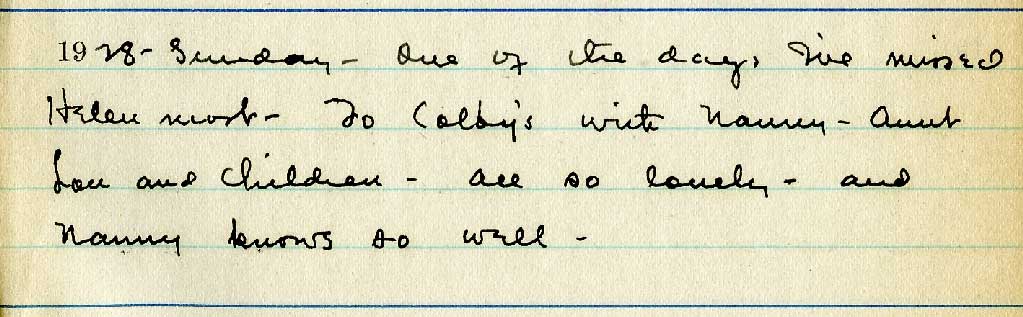 1928 - Sunday - One of the days I've missed
Helen most - To Colby's with Nanny - Aunt
Lou and Children - All so lonely - and
Nanny knows so well -